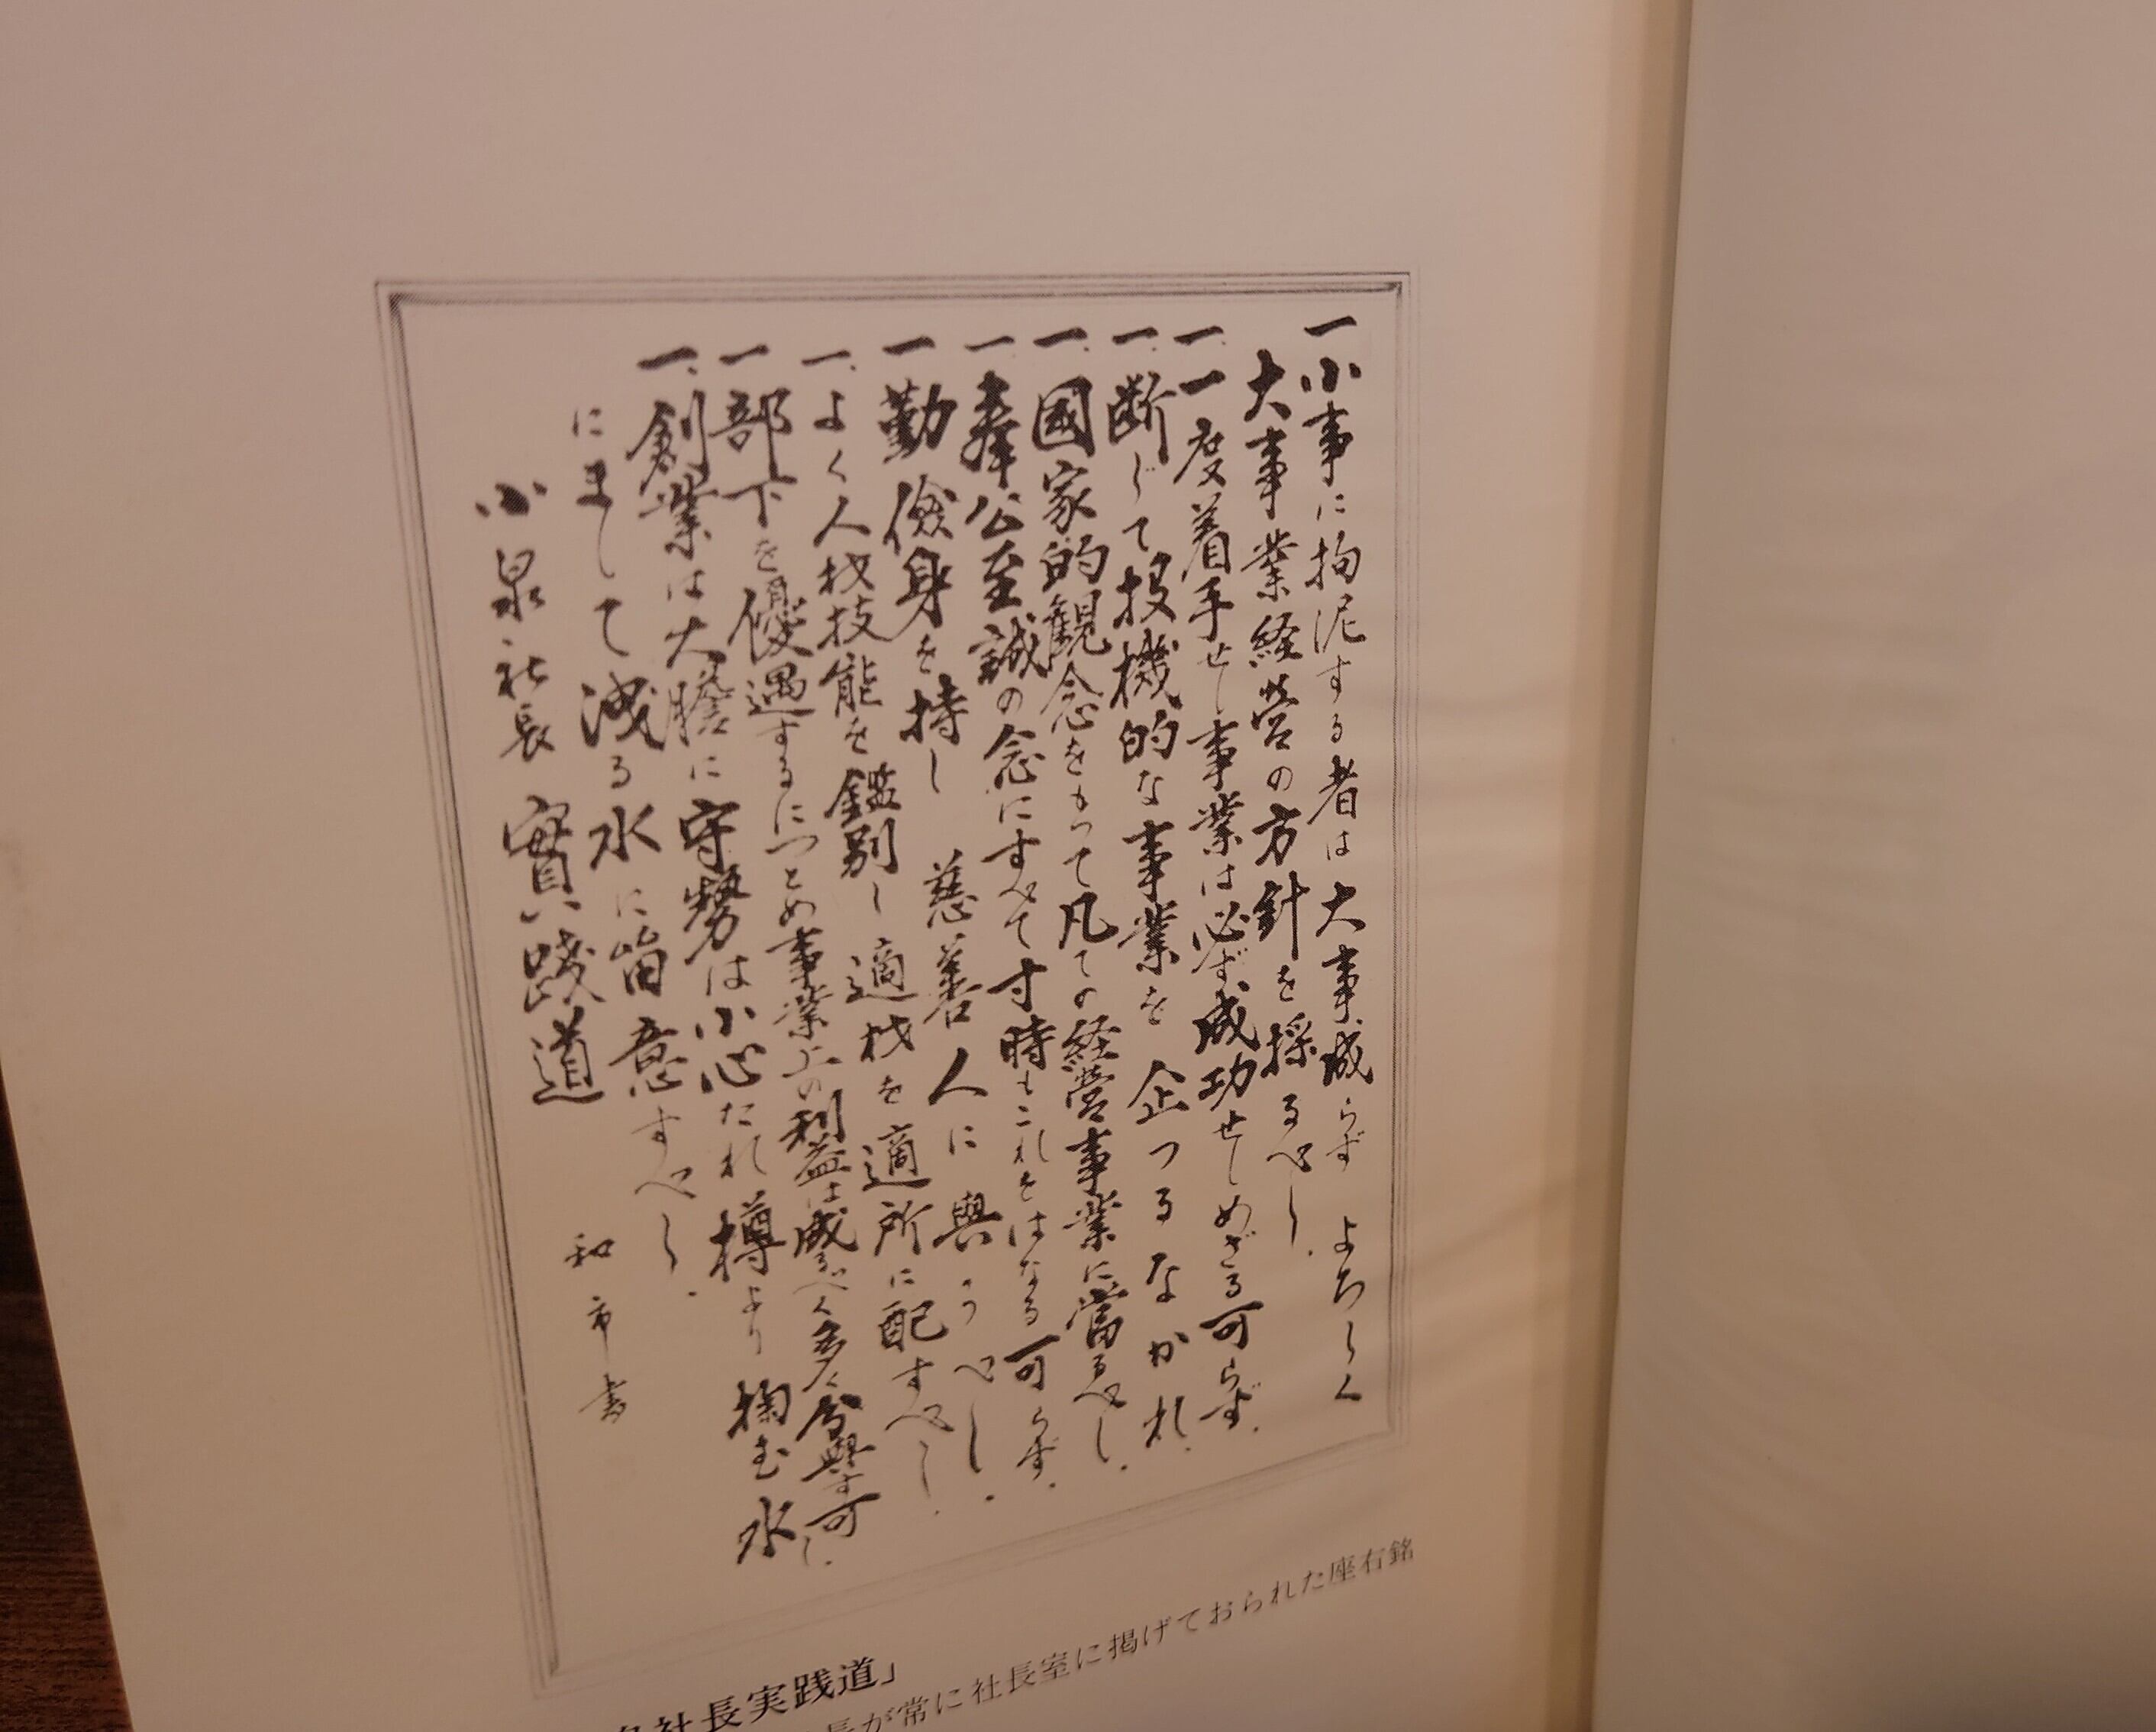 一 小事に拘泥する者は大事成らず よろしく
大事業経営の方針を採るべし.
一. 一度着手せし事業は必ず成功せしめざる可らず.
一. 断じて投機的な事業を企つるなかれ.
一. 國家的観念をもって凡ての経営事業に當るべし.
一. 奉公至誠の念にすべて寸時もこれをはなる可らず.
一 勤倹身を持し 慈善人に與うべし.
一. よく人材技能を鑑別し適材を適所に配すべし.
一 部下を優遇するにつとめ事業上の利益は成べく多く分與す可し.
一. 創業は大膽に守勢は小心たれ樽より掬む水
にまして洩る水に留意すべし.
小泉社長 實践道
和市書
社長実践道」
長が常に社長室に掲げておられた座右銘